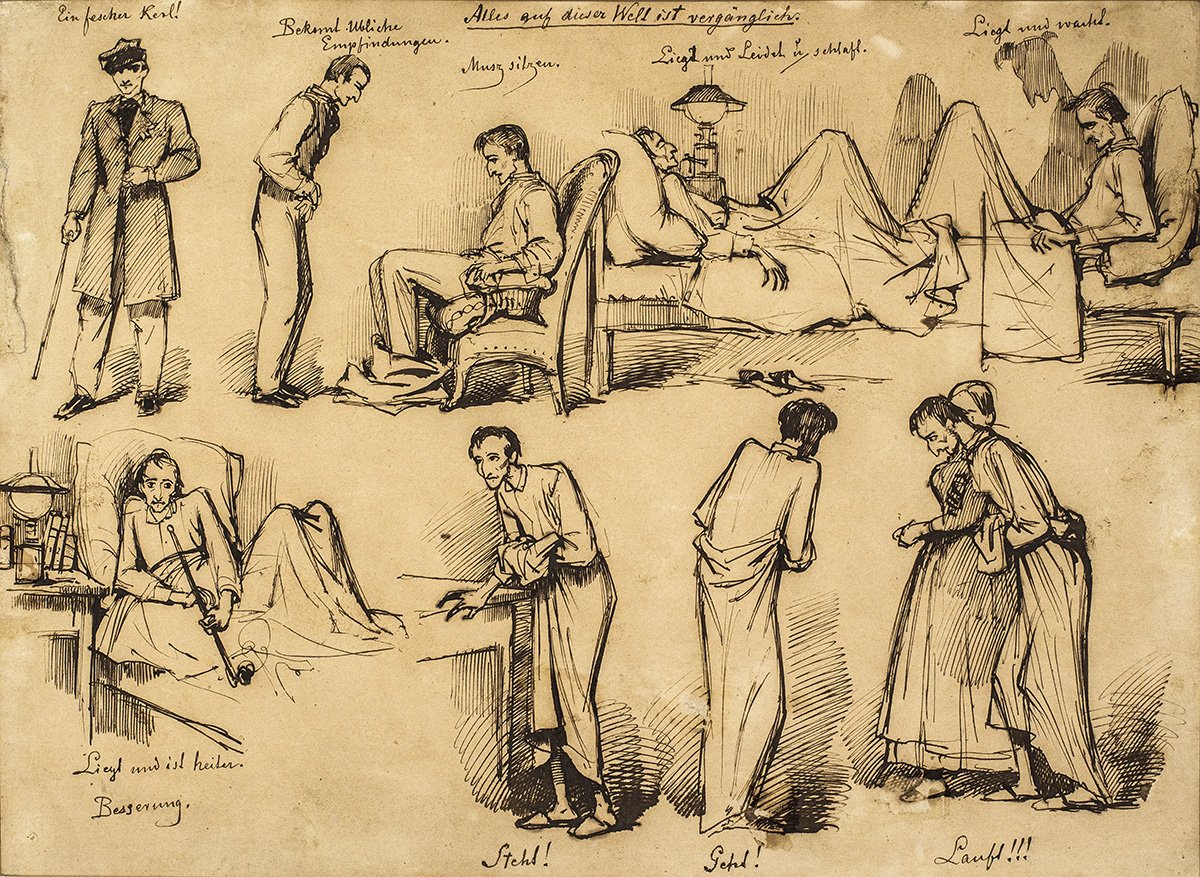 Ein fescher Kerl!
Bekomt Übliche
Empfindungen.
Alles auf dieser Welt ist vergänglich.
Musz sitzen.
Liegt und Leidet u. schlaft.
Liegt und wacht.
Liegt und ist heiter.
Besserung.
Steht!
Geht!
Lauft!!!